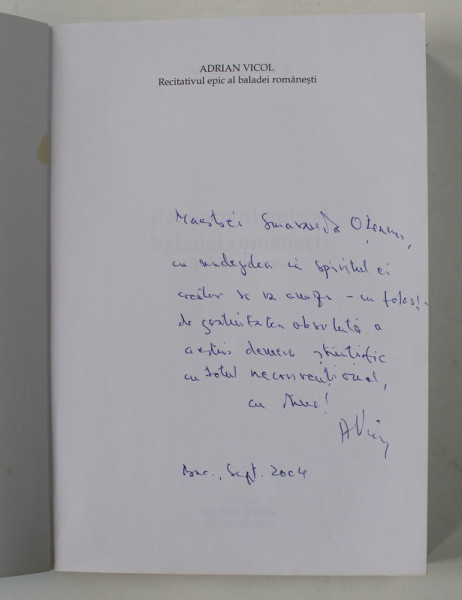 ADRIAN VICOL
Recitativul epic al baladei românești
Maestrei Smaranda Oțeanu,
cu nădejdea că spiritul ei
creator se va amuza – cu folos! –
de gratuitatea absolută a
acestui demers științific
cu totul neconvențional,
cu drag!
AVicol
Buc., Sept. 2004